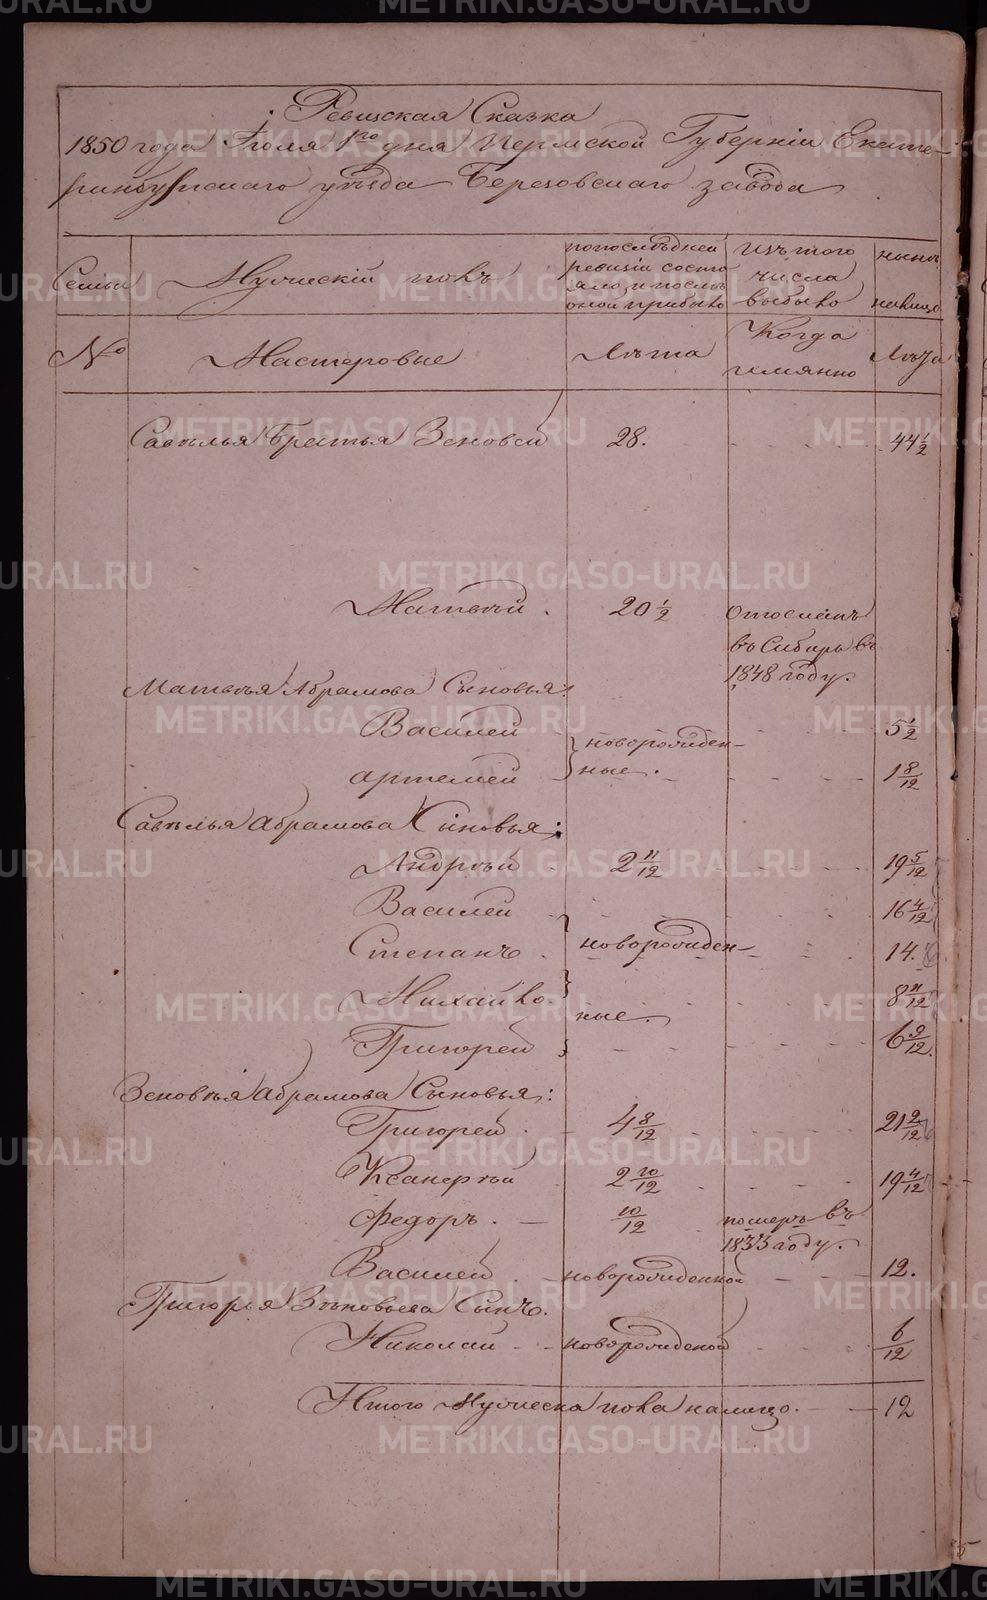 Ревизская Сказка
1850 года Іюля 1го дня Пермской Губерніи Екате-
ринбургскаго уѣзда Березовскаго завода
Семьи
Мужескій полъ
по послѣдней ревизіи состояло и послѣ оной прибыло
изъ того числа выбыло
нынѣ налицо
№
Мастеровые
Лѣта
Когда имянно
Лѣта
Савелья Братья Зеновей 28. 44 1/2
Матвѣй. 20 1/2 отосланъ
въ Сибирь въ
1848 году.
Матвѣя Абрамова Сыновья:
Василей новорожден- 5 1/2
артемей ные. 1 8/12
Савелья Абрамова Сыновья:
Андрѣй 2 11/12 19 5/12
Василей 16 4/12
Степанъ. новорожден- 14.
Михайло 8 11/12
ные.
Григорей 6 9/12.
Зеновья Абрамова Сыновья:
Григорей. 4 8/12 21 2/12
Ксанерѣй 2 10/12 19 4/12
Федоръ. 10/12 померъ въ
1833 году.
Василей новорожденной 12.
Григорья Зѣновьева Сынъ.
Николай новорожденой 6/12
Итого мужеска пола налицо. 12
METRIKI.GASO-URAL.RU